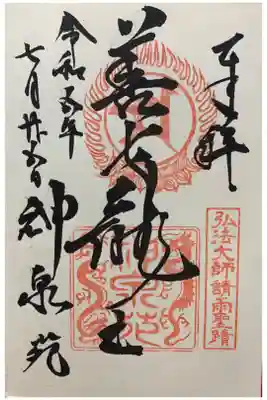 奉拝
弘法大師請雨聖蹟
善女龍王
神泉苑
令和五年
七月廿五日